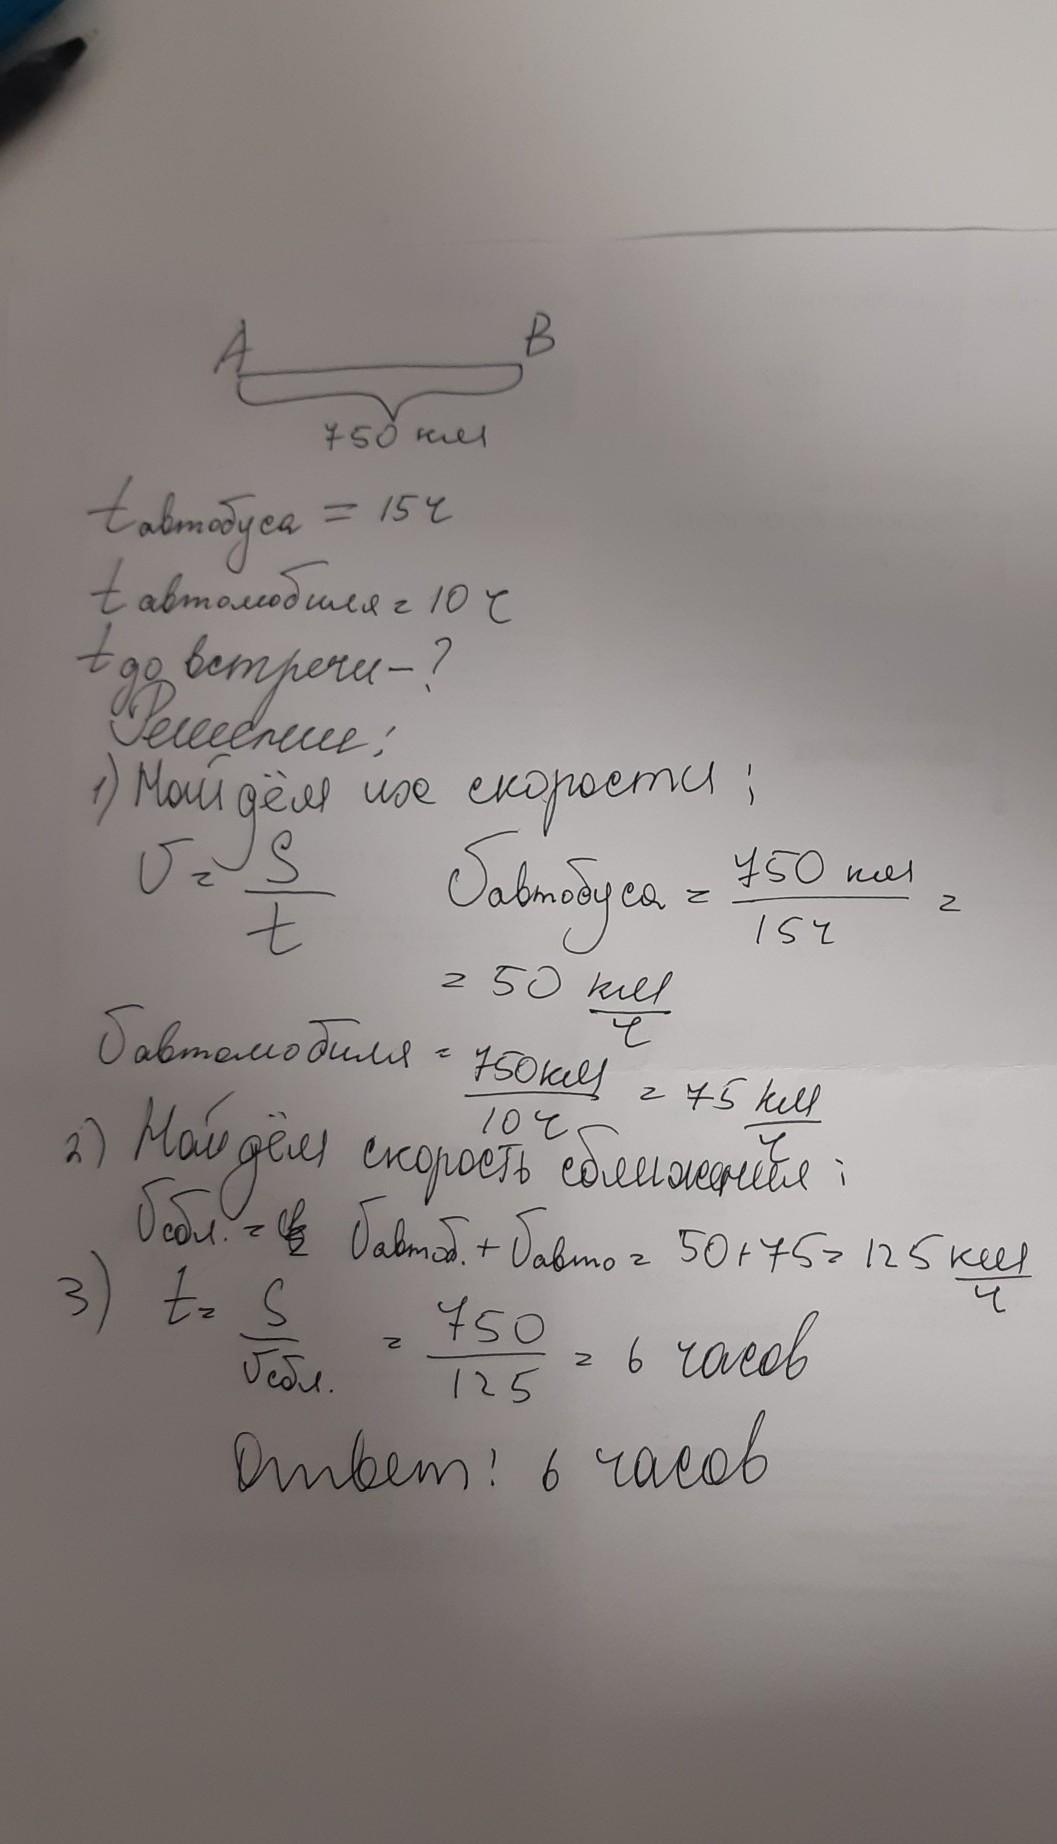 A B
750 км
t автобуса = 15 ч
t автомобиля = 10 ч
t до встречи - ?
Решение:
1) Найдём их скорости:
v = S/t vавтобуса = 750 км/15 ч =
= 50 км/ч
vавтомобиля = 750 км/10 ч = 75 км/ч
2) Найдём скорость сближения:
vсбл. = vавтоб. + vавто = 50+75 = 125 км/ч
3) t = S/vсбл. = 750/125 = 6 часов
Ответ: 6 часов